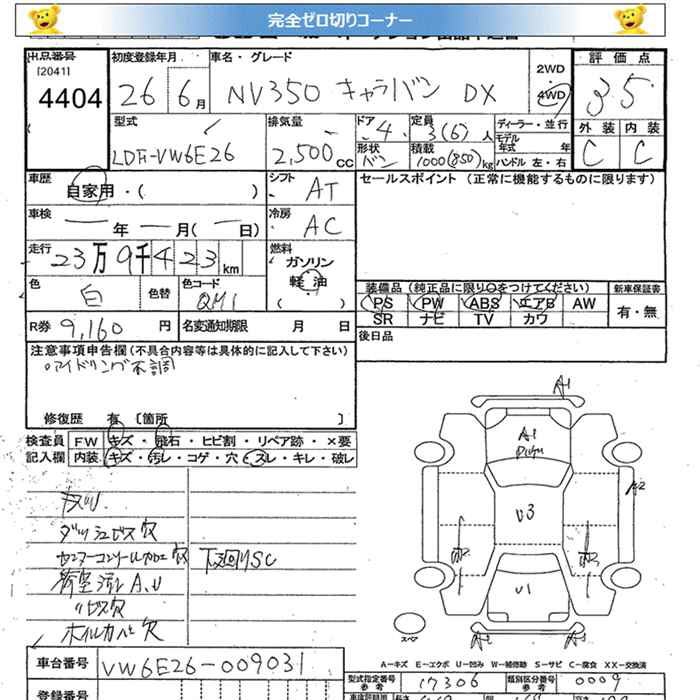 完全ゼロ切りコーナー
出品番号
[2041]
4404
初度登録年月
26 6月
車名・グレード
NV350 キャラバン DX
2WD
4WD
評価点
3.5
外装 内装
C C
型式
LDF-VW6E26
排気量
2,500cc
ドア
4
定員
3(6)人
形状
バン
積載
1000(850)kg
ディーラー・並行
モデル
年式 年
ハンドル 左・右
車歴
自家用・( )
シフト
AT
車検
年 月( 日)
冷房
AC
走行
23万9千423km
燃料
ガソリン
軽油
色
白
色替
色コード
QM1
R券 9,160円
名変通知期限 月 日
セールスポイント (正常に機能するものに限ります)
装備品(純正品に限り○をつけてください)
新車保証書
PS PW ABS エアB AW
SR ナビ TV カワ
有・無
後日品
注意事項申告欄(不具合内容等は具体的に記入して下さい)
アイドリング不調
修復歴 有 〔箇所 〕
検査員
記入欄
FW キズ・飛石・ヒビ割・リペア跡・×要
内装 キズ・汚レ・コゲ・穴・スレ・キレ・破レ
ダッシュビス穴
センターコンソール 穴
荷室 A,U
ビス穴
ホイルカバー欠
下廻りSC
A1
A1
A2
U3
U1
A2
A2
A-キズ E-エクボ U-凹み W-補修跡 S-サビ C-腐食 XX-交換済
車台番号
VW6E26-009031
型式指定番号
参考
17306
類別区分番号
参考
0009
登録番号